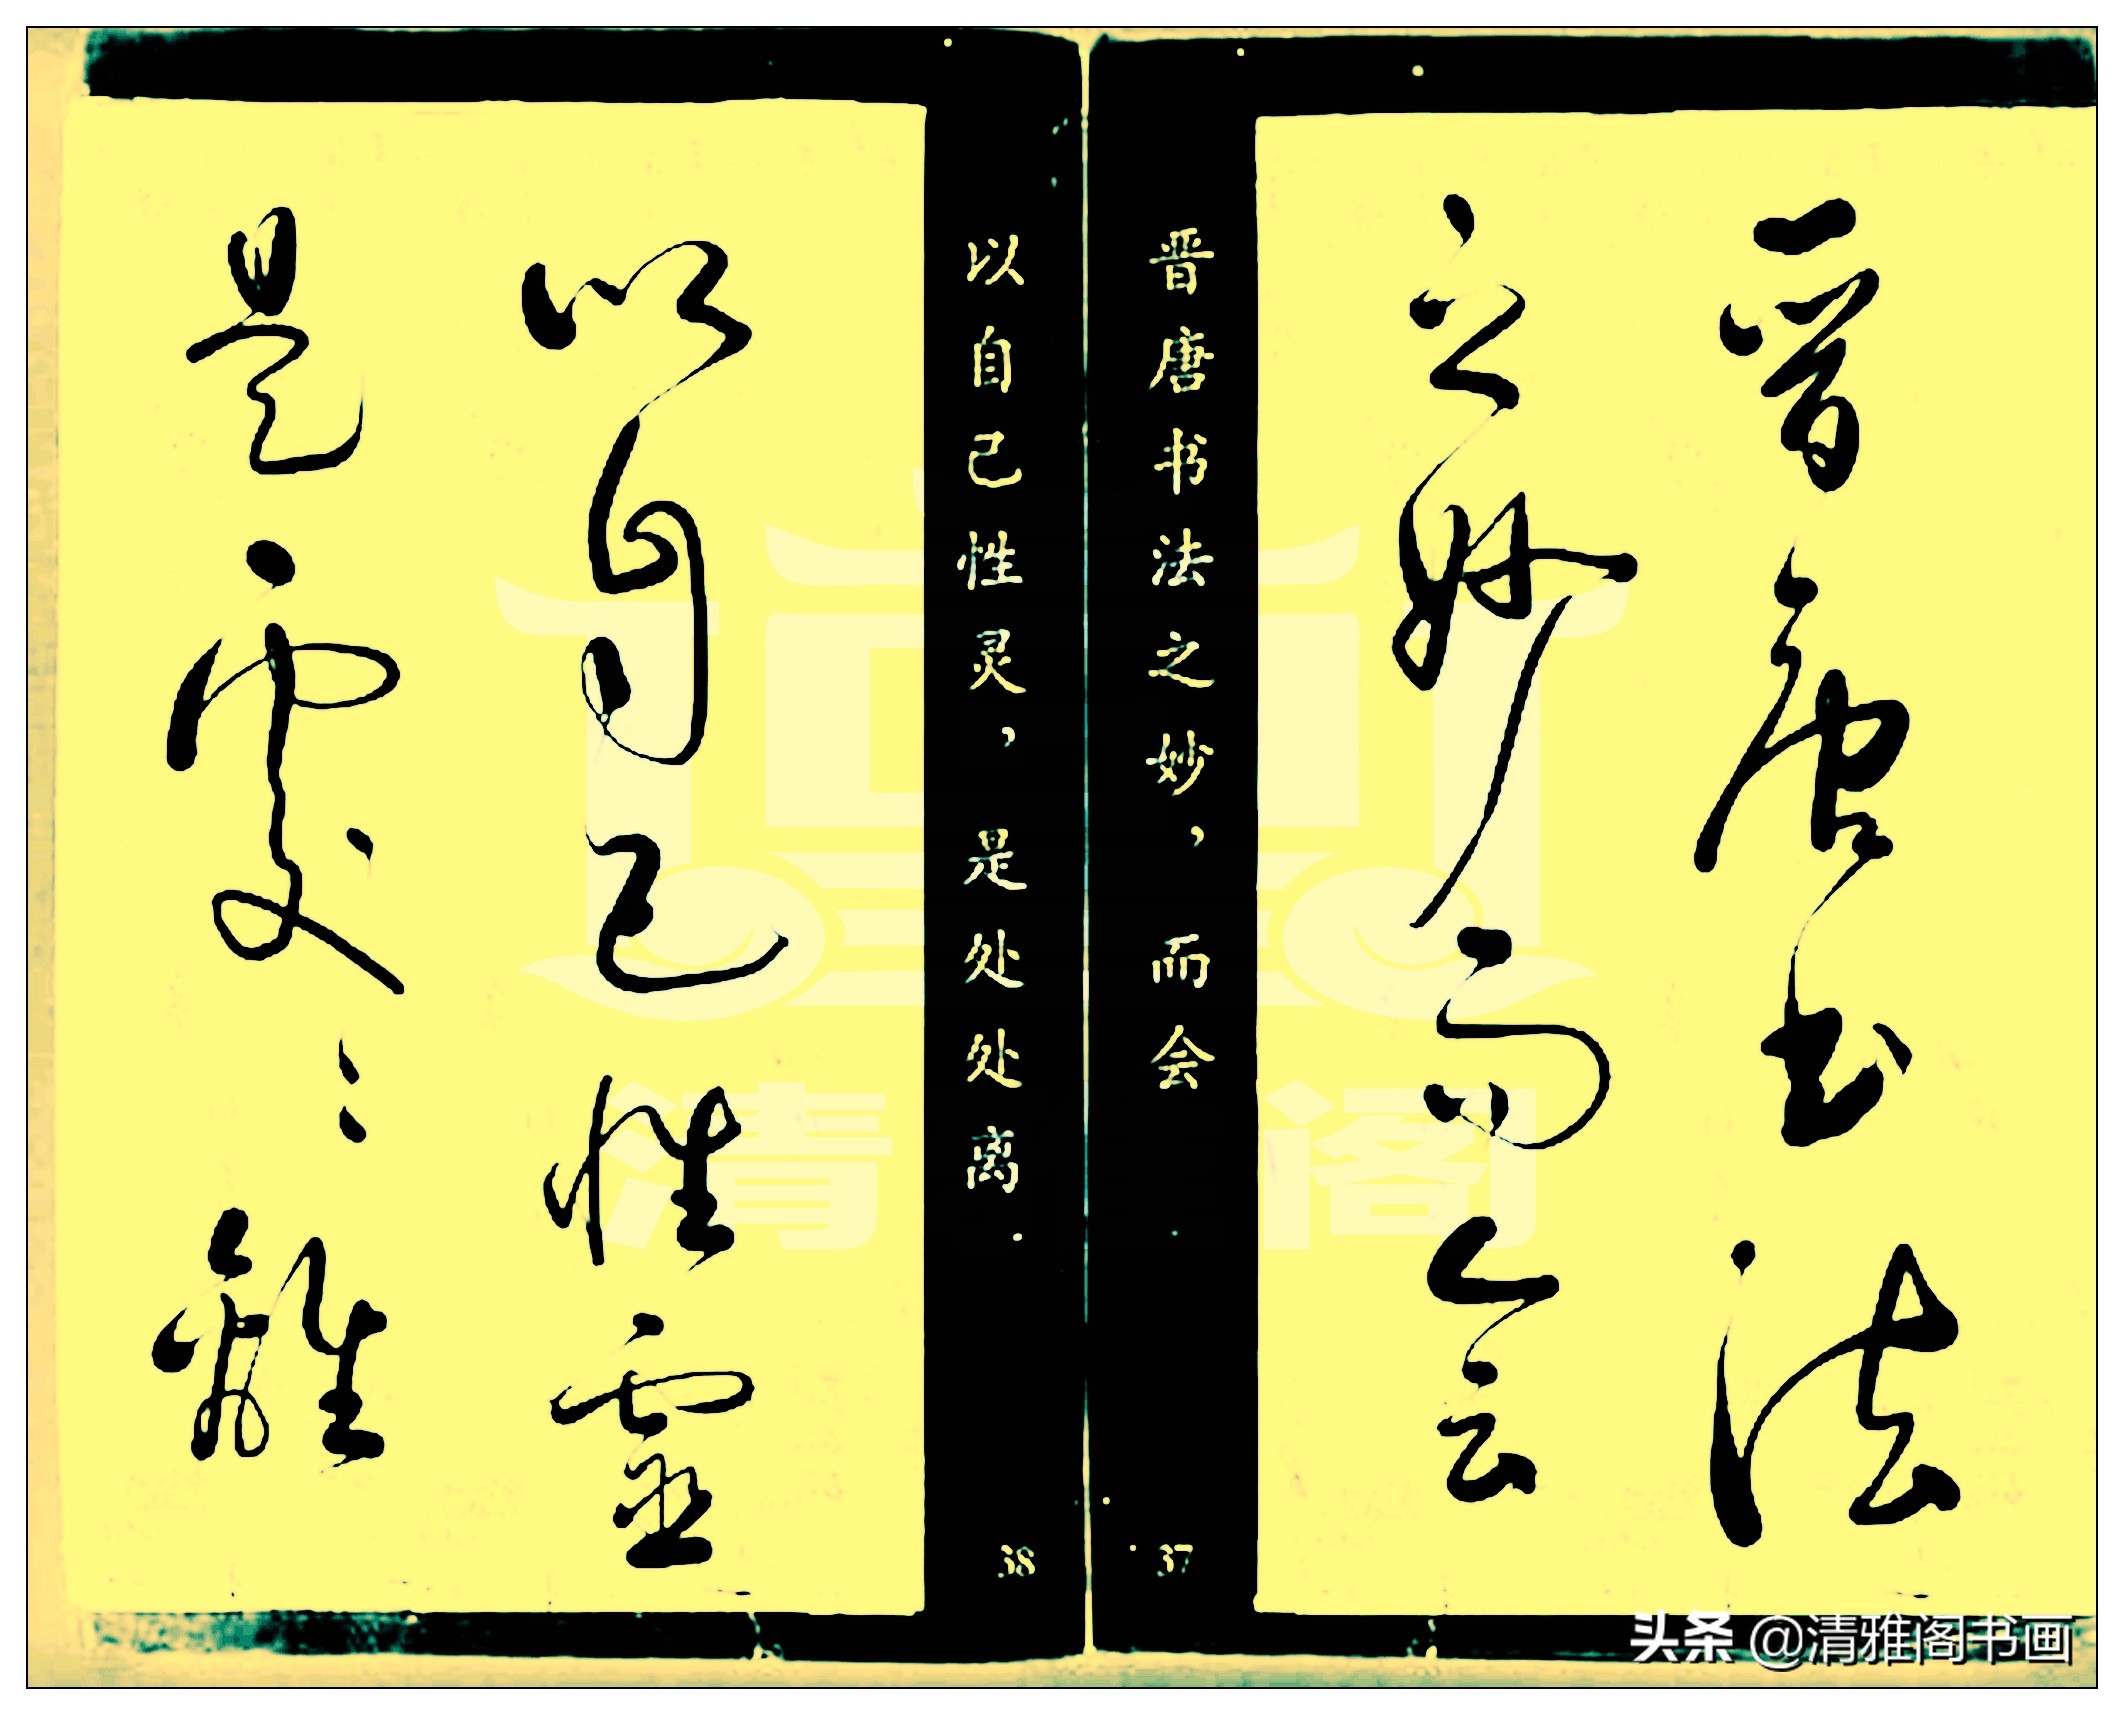 晋唐书法
之妙而会
晋唐书法之妙，而会
37
以自己性灵，是处处离．
38
以自己性靈
是處〻離
清 阁
头条 @清雅阁书画